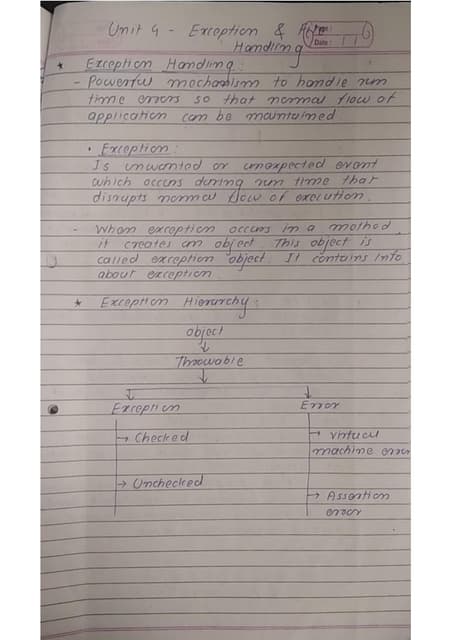 Unit 4 - Exception &
Handling
Date:
* Exception Handling:
- Powerful mechanism to handle run
time errors so that normal flow of
application can be maintained
• Exception:
Is unwanted or unexpected event
which occurs during run time that
disrupts normal flow of execution.
- When exception occurs in a method,
it creates an object. This object is
called exception object. It contains info
about exception
* Exception Hierarchy:
object
↓
Throwable
↓
Exception Error
→ Checked → virtual
machine error
→ Unchecked → Assertion
error